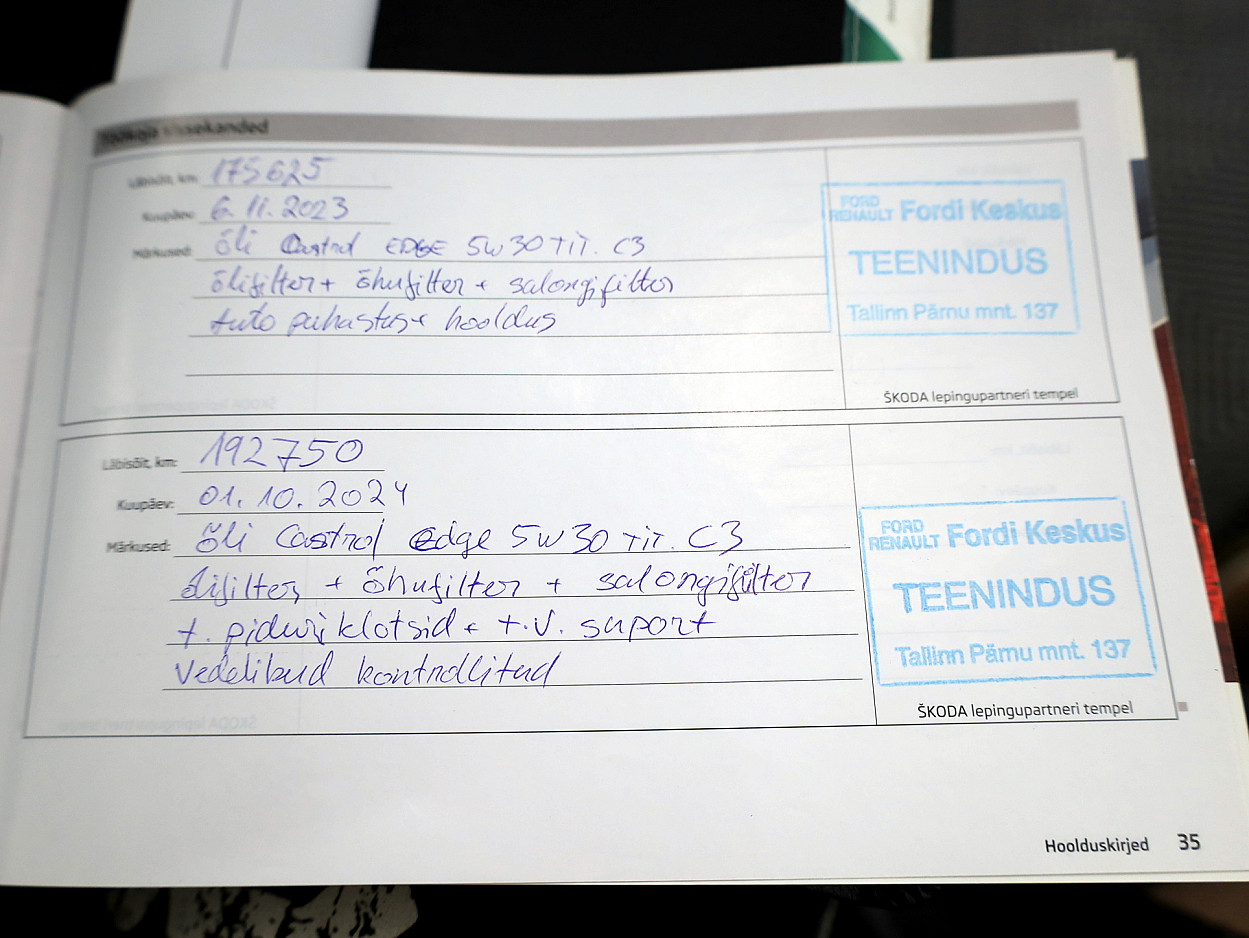 Töökoja sissekanded
Läbisõit, km: 175625
Kuupäev: 6.11.2023
Märkused: Õli Castrol EDGE 5W30 TIT. C3
õlifilter + õhufilter + salongifilter
puhastus + hooldus
FORD
RENAULT Fordi Keskus
TEENINDUS
Tallinn Pärnu mnt. 137
ŠKODA lepingupartneri tempel
Läbisõit, km: 192750
Kuupäev: 01.10.2024
Märkused: Õli Castrol Edge 5W30 TIT. C3
õlifilter + õhufilter + salongifilter
t. piduriklotsid + t.v. suport
Vedelikud kontrollitud
FORD
RENAULT Fordi Keskus
TEENINDUS
Tallinn Pärnu mnt. 137
ŠKODA lepingupartneri tempel
Hoolduskirjed 35